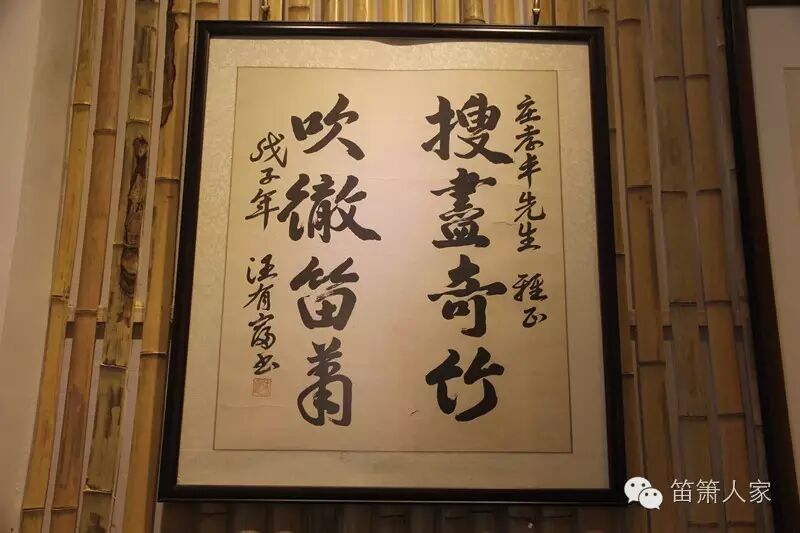 庄孝平先生 雅正
搜盡奇竹
吹徹笛蕭
戊子年 汪有富书
笛箫人家